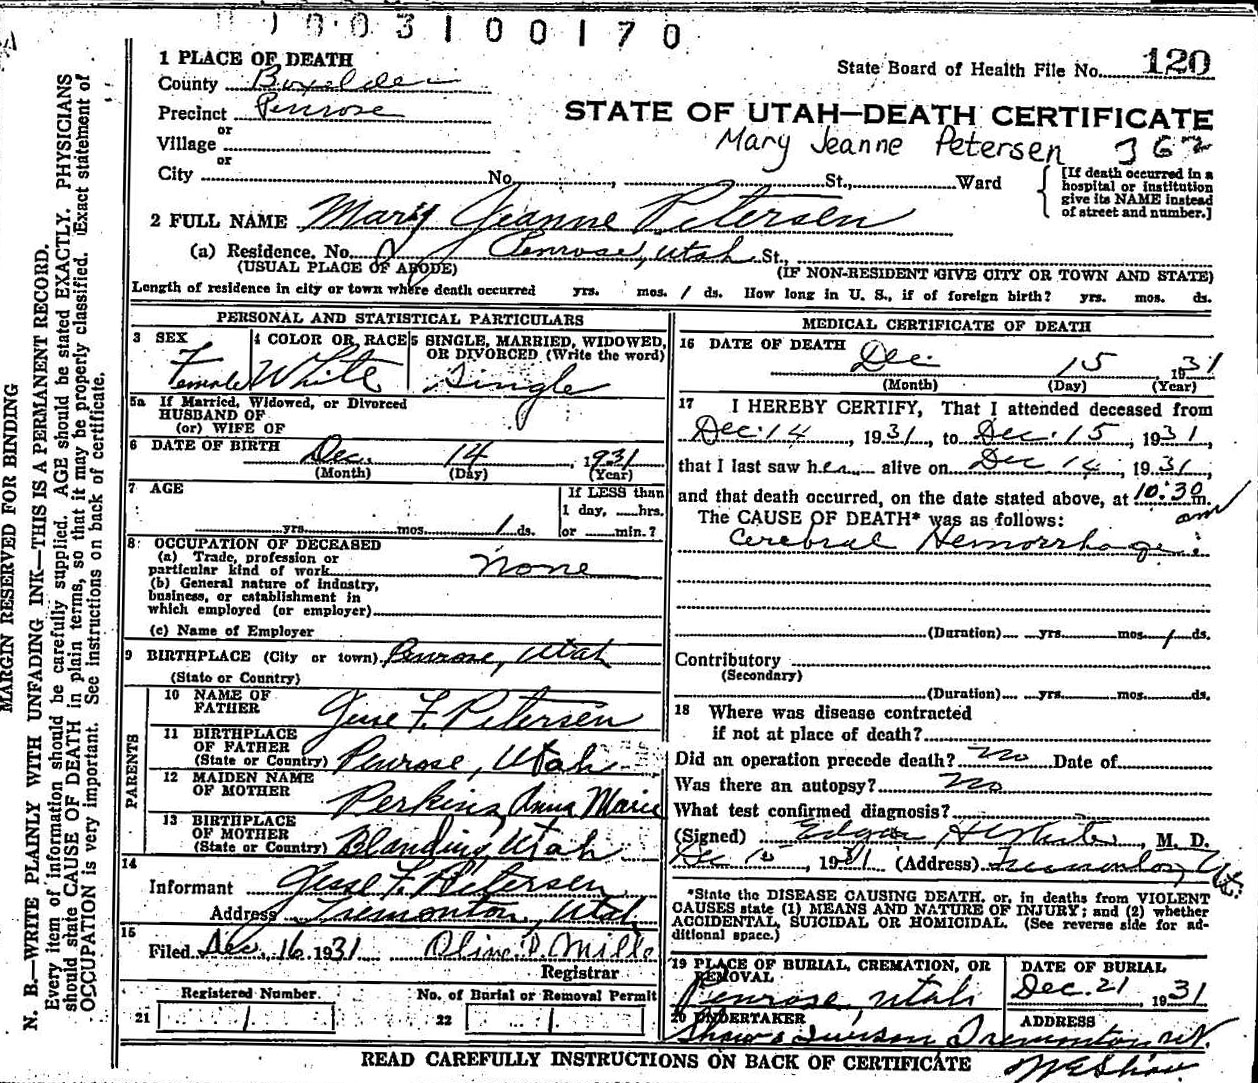 1003100170
State Board of Health File No. 120
STATE OF UTAH—DEATH CERTIFICATE
Mary Jeanne Petersen 362
1 PLACE OF DEATH
County Boxelder
Precinct Penrose
or
Village
or
City No. , St., Ward
[If death occurred in a
hospital or institution
give its NAME instead
of street and number.]
2 FULL NAME Mary Jeanne Petersen
(a) Residence. No. Penrose, Utah St.,
(USUAL PLACE OF ABODE) (IF NON-RESIDENT GIVE CITY OR TOWN AND STATE)
Length of residence in city or town where death occurred yrs. mos. 1 ds. How long in U. S., if of foreign birth? yrs. mos. ds.
PERSONAL AND STATISTICAL PARTICULARS
3 SEX
Female
4 COLOR OR RACE
White
5 SINGLE, MARRIED, WIDOWED,
OR DIVORCED (Write the word)
Single
5a If Married, Widowed, or Divorced
HUSBAND OF
(or) WIFE OF
6 DATE OF BIRTH Dec. 14, 1931
(Month) (Day) (Year)
7 AGE
yrs. mos. 1 ds.
If LESS than
1 day, hrs.
or min.?
8 OCCUPATION OF DECEASED
(a) Trade, profession or
particular kind of work none
(b) General nature of industry,
business, or establishment in
which employed (or employer)
(c) Name of Employer
9 BIRTHPLACE (City or town) Penrose, Utah
(State or Country)
PARENTS
10 NAME OF
FATHER Jesse F. Petersen
11 BIRTHPLACE
OF FATHER
(State or Country) Penrose, Utah
12 MAIDEN NAME
OF MOTHER Perkins, Anna Marie
13 BIRTHPLACE
OF MOTHER
(State or Country) Blanding, Utah
14
Informant Jesse F. Petersen
Address Tremonton, Utah
15
Filed Dec. 16, 1931 Olive D. Mills
Registrar
Registered Number.
21 1
No. of Burial or Removal Permit
22 1
MEDICAL CERTIFICATE OF DEATH
16 DATE OF DEATH
Dec. 15 1931
(Month) (Day) (Year)
17 I HEREBY CERTIFY, That I attended deceased from
Dec. 14, 1931, to Dec. 15, 1931,
that I last saw her alive on Dec 14, 1931,
and that death occurred, on the date stated above, at 10:30 m.
am
The CAUSE OF DEATH* was as follows:
Cerebral Hemorrhage
(Duration) yrs. mos. 1 ds.
Contributory
(Secondary)
(Duration) yrs. mos. ds.
18 Where was disease contracted
if not at place of death?
Did an operation precede death? no Date of
Was there an autopsy? no
What test confirmed diagnosis?
(Signed) Edgar H White, M. D.
Dec 15, 1931 (Address) Tremonton, Ut.
*State the DISEASE CAUSING DEATH, or, in deaths from VIOLENT
CAUSES state (1) MEANS AND NATURE OF INJURY; and (2) whether
ACCIDENTAL, SUICIDAL OR HOMICIDAL. (See reverse side for ad-
ditional space.)
19 PLACE OF BURIAL, CREMATION, OR
REMOVAL
Penrose, Utah
DATE OF BURIAL
Dec. 21, 1931
20 UNDERTAKER
Shaw & Iverson
ADDRESS
Tremonton Ut.
READ CAREFULLY INSTRUCTIONS ON BACK OF CERTIFICATE
M E Shaw
MARGIN RESERVED FOR BINDING
N. B.—WRITE PLAINLY WITH UNFADING INK—THIS IS A PERMANENT RECORD.
Every item of information should be carefully supplied. AGE should be stated EXACTLY. PHYSICIANS
should state CAUSE OF DEATH in plain terms, so that it may be properly classified. Exact statement of
OCCUPATION is very important. See instructions on back of certificate.